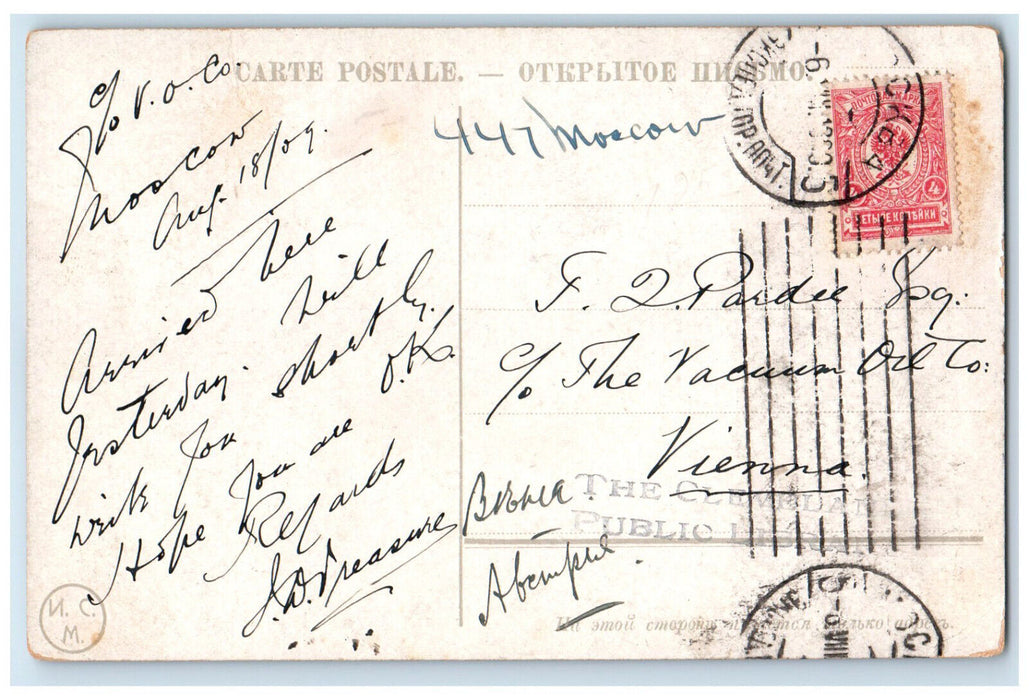 CARTE POSTALE. — ОТКРЫТОЕ ПИСЬМО.
c/o V.O.Co.
Moscow
Aug. 18/09.
Arrived here
Yesterday. Will
write you shortly.
Hope you are O.K.
Regards
J.D. Treasure
447 Moscow
ПОЧТОВАЯ МАРКА
4 4
ЧЕТЫРЕ КОПѢЙКИ
F. Q. Pardee Esq:
c/o The Vacuum Oil Co:
Vienna.
Вѣна
Австрія.
THE CLEVELAND
PUBLIC
На этой сторонѣ пишется только адресъ.
И. С.
М.